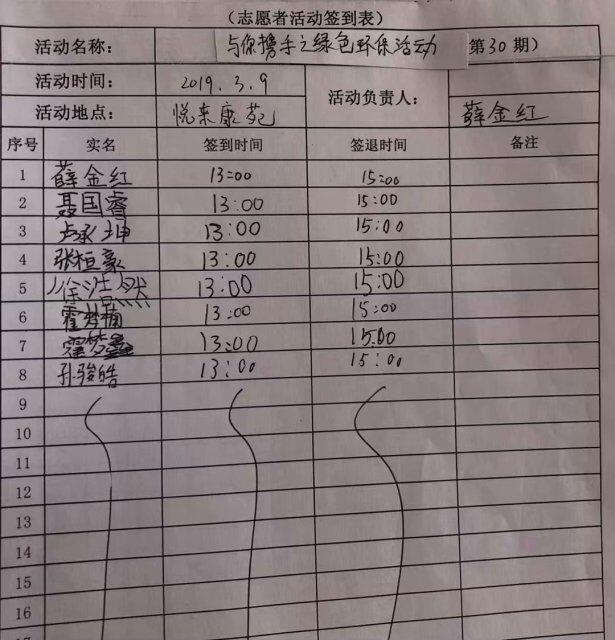 (志愿者活动签到表)
活动名称： 与你携手之绿色环保活动 第30期)
活动时间： 2019.3.9 活动负责人： 薛金红
活动地点： 悦来康苑
序号 实名 签到时间 签退时间 备注
1 薛金红 13:00 15:00
2 聂国睿 13:00 15:00
3 卢承坤 13:00 15:00
4 张桓豪 13:00 15:00
5 徐浩然 13:00 15:00
6 霍梦楠 13:00 15:00
7 霍梦鑫 13:00 15:00
8 孙骏皓 13:00 15:00
9
10
11
12
13
14
15
16